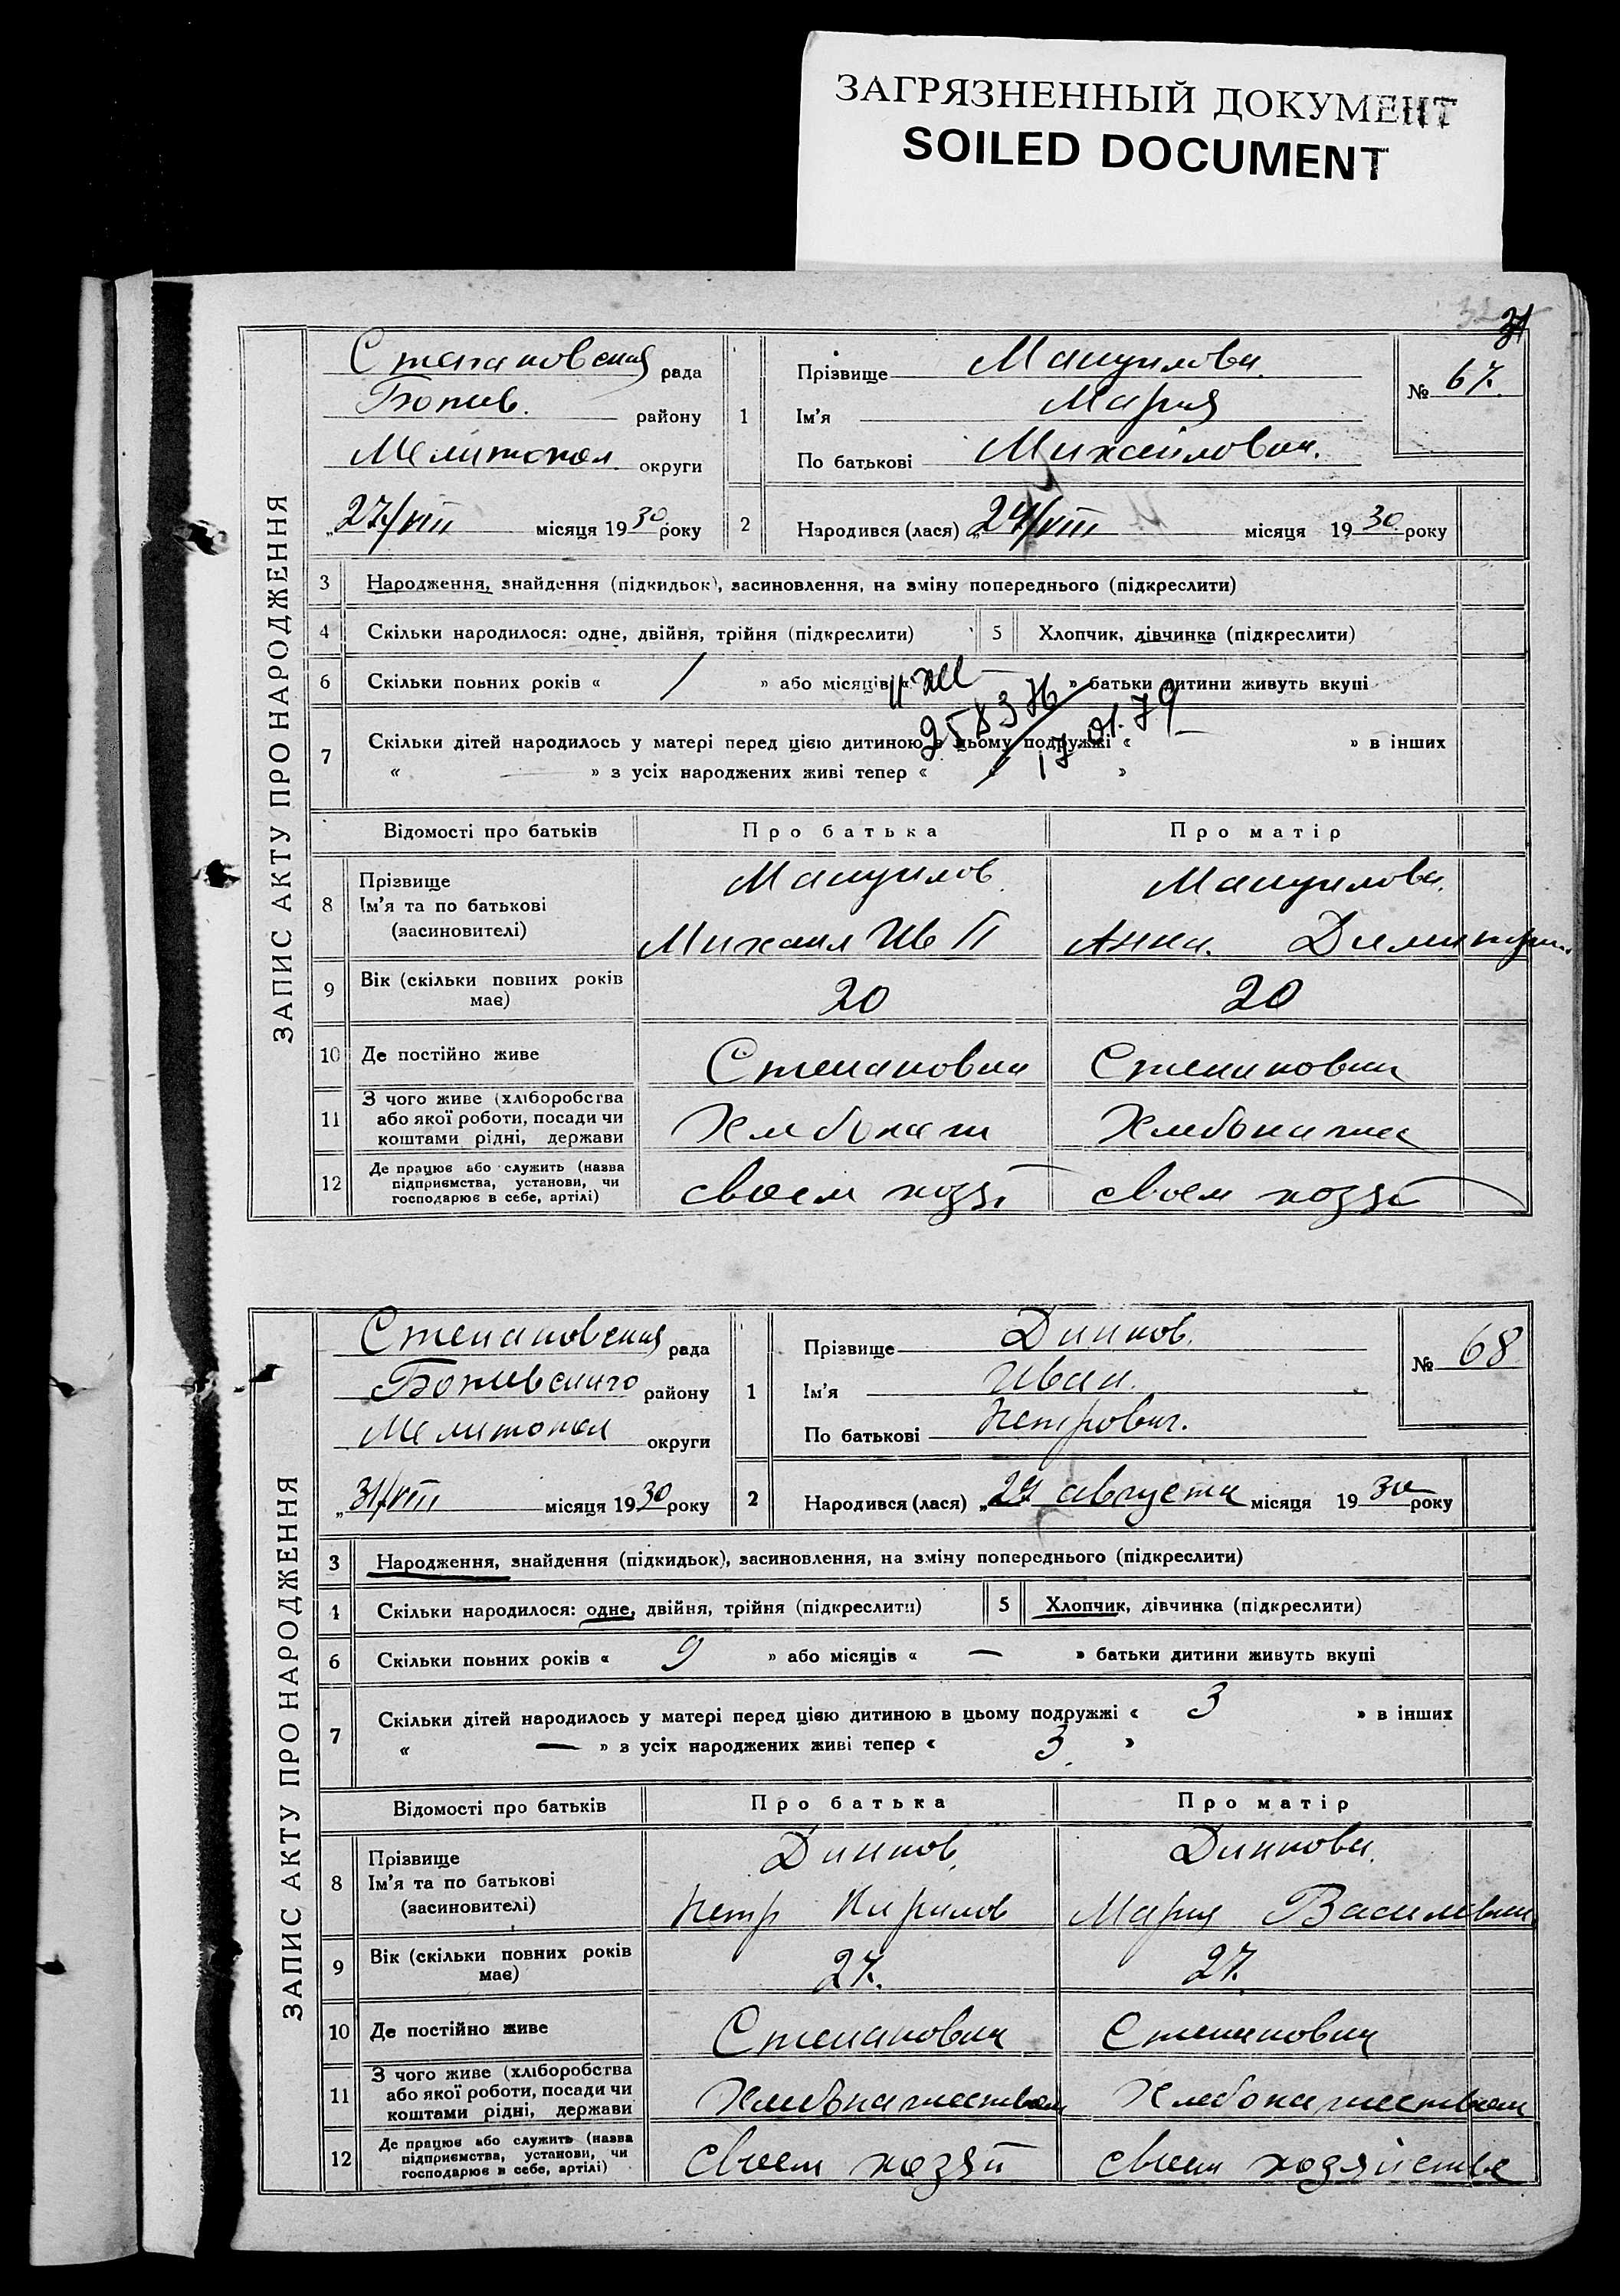 ЗАГРЯЗНЕННЫЙ ДОКУМЕНТ
SOILED DOCUMENT
31
ЗАПИС АКТУ ПРО НАРОДЖЕННЯ
Степановская рада
Ботиев. району
Мелитопол округи
„27/VIII місяця 1930 року
1
Прізвище Мануилова.
Ім'я Мария
По батькові Михаиловна.
№ 67.
2 Народився (лася) „24/VIII місяця 1930 року
3 Народження, знайдення (підкидьок), засиновлення, на зміну попереднього (підкреслити)
4 Скільки народилося: одне, двійня, трійня (підкреслити) 5 Хлопчик, дівчинка (підкреслити)
6 Скільки повних років « 1 » або місяців « » батьки дитини живуть вкупі
258376
17.01.79
7 Скільки дітей народилось у матері перед цією дитиною в цьому подружжі « » в інших
« — » з усіх народжених живі тепер « »
Відомості про батьків Про батька Про матір
8 Прізвище Мануилов Мануилова.
Ім'я та по батькові
(засновителі) Михаил Ив Анна. Димитри
9 Вік (скільки повних років має) 20 20
10 Де постійно живе Степановки Степановки
11 З чого живе (хліборобства
або якої роботи, посади чи
коштами рідні, держави Хлебопаш Хлебопаше
12 Де працює або служить (назва
підприємства, установи, чи
господарює в себе, артілі) своем хозяй своем хозяй
ЗАПИС АКТУ ПРО НАРОДЖЕННЯ
Степановская рада
Ботиевского району
Мелитопол округи
„31/VIII місяця 1930 року
1
Прізвище Динков.
Ім'я Иван.
По батькові Петрович.
№ 68
2 Народився (лася) „27 августа місяця 1930 року
3 Народження, знайдення (підкидьок), засиновлення, на зміну попереднього (підкреслити)
4 Скільки народилося: одне, двійня, трійня (підкреслити) 5 Хлопчик, дівчинка (підкреслити)
6 Скільки повних років « 9 » або місяців « — » батьки дитини живуть вкупі
7 Скільки дітей народилось у матері перед цією дитиною в цьому подружжі « 3 » в інших
« — » з усіх народжених живі тепер « 3 »
Відомості про батьків Про батька Про матір
8 Прізвище Динков. Динкова.
Ім'я та по батькові
(засиновителі) Петр Кирилов Мария Василевна
9 Вік (скільки повних років має) 27. 27.
10 Де постійно живе Степановки Степановки
11 З чого живе (хліборобства
або якої роботи, посади чи
коштами рідні, держави Хлебопашеством Хлебопашеством
12 Де працює або служить (назва
підприємства, установи, чи
господарює в себе, артілі) своем хозяй своем хозяйстве